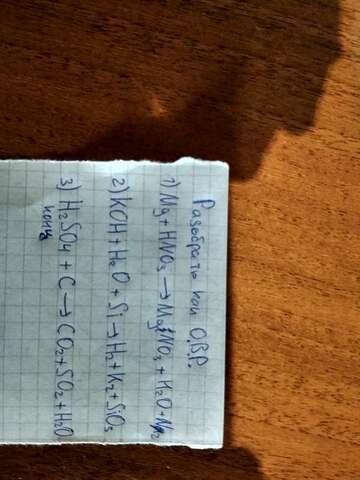 Разобрать как О.В.Р.
1) Mg + HNO3 → MgNO3 + H2O + N2
2) KOH + H2O + Si → H2 + K2 + SiO3
3) H2SO4 + C → CO2 + SO2 + H2O
конц